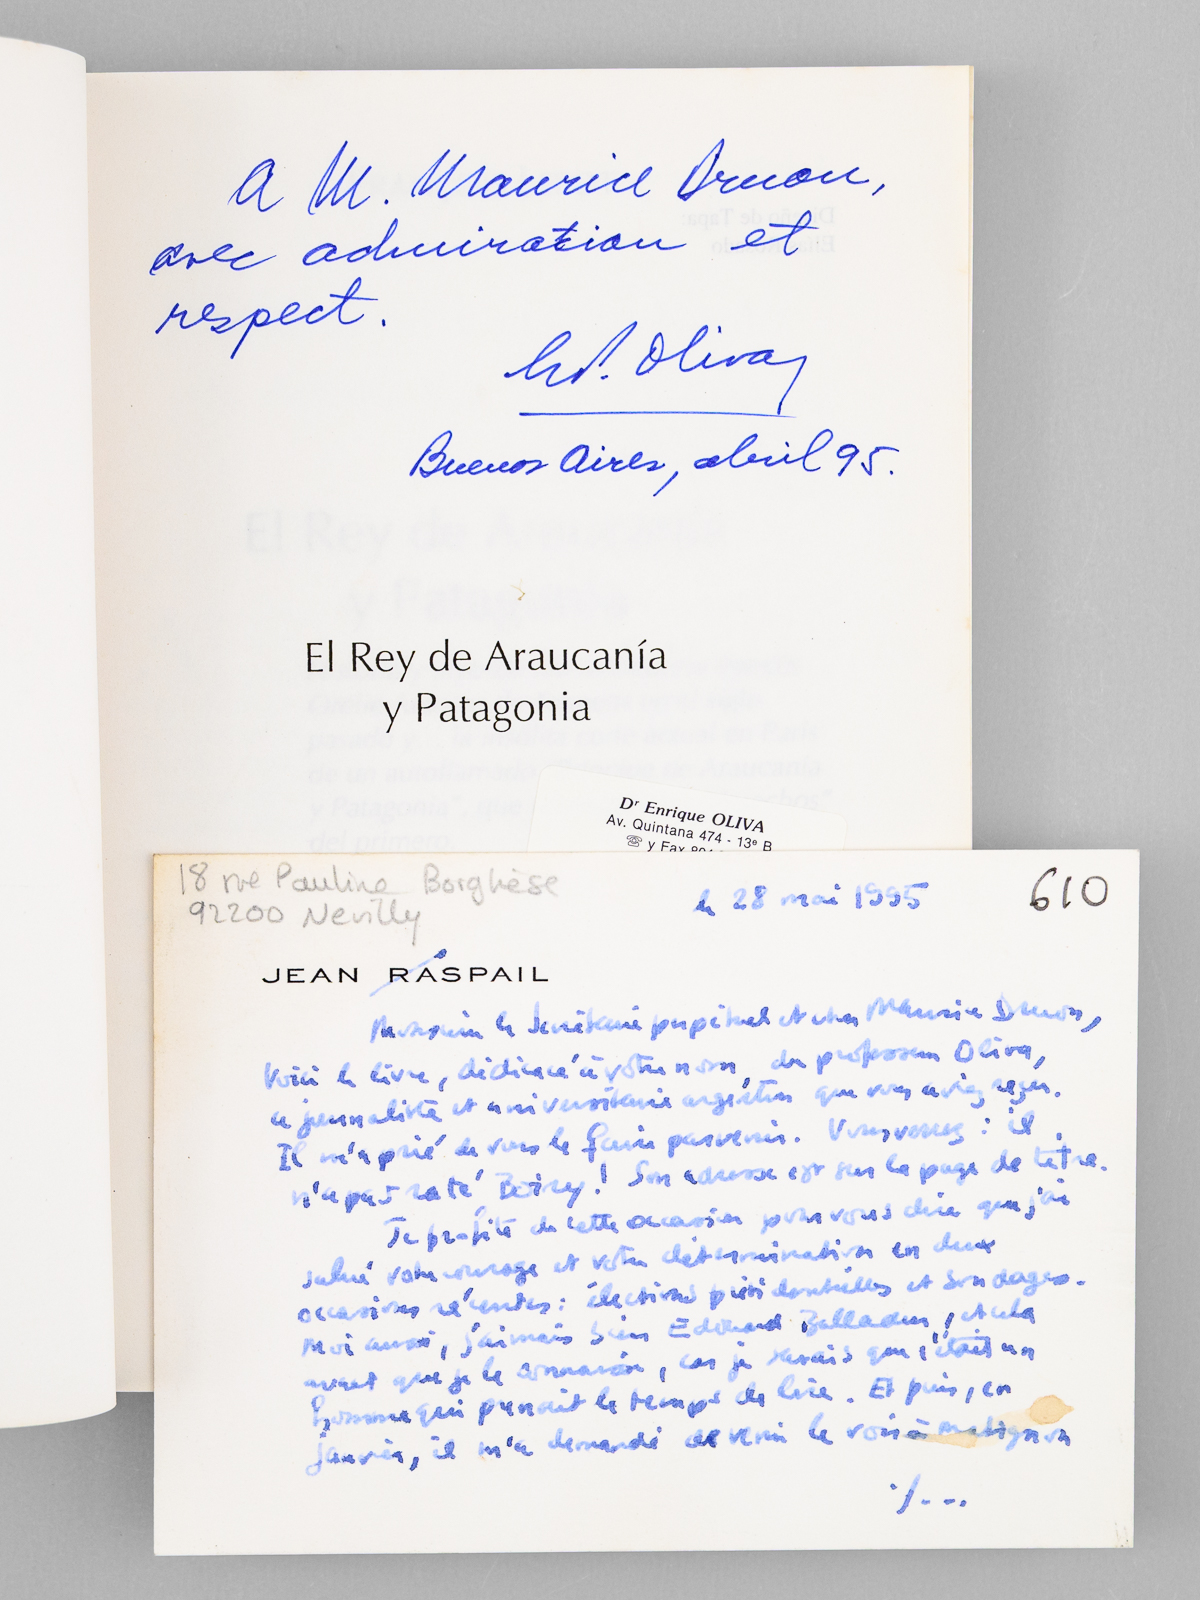 A M. Maurice Druon,
avec admiration et
respect.
Oliva
Buenos Aires, abril 95.
El Rey de Araucanía
y Patagonia
Dr Enrique OLIVA
Av. Quintana 474 - 13e B
☏ y Fax
18 rue Pauline Borghèse
92200 Neuilly
le 28 mai 1995
610
JEAN RASPAIL
Monsieur le Secrétaire perpétuel et cher Maurice Druon,
Voici le livre, dédicacé à votre nom, du professeur Oliva,
ce journaliste et universitaire argentin que vous aviez reçu.
Il m'a prié de vous le faire parvenir. Vous voyez : il
n'a pas raté Boiry ! Son adresse est sur la page de titre.
Je profite de cette occasion pour vous dire que j'ai
salué votre courage et votre détermination en deux
occasions récentes : élections présidentielles et sondages.
Moi aussi, j'aimais bien Edouard Balladur, et cela
avant que je le connaisse, car je savais que c'était un
homme qui prenait le temps de lire. Et puis, en
janvier, il m'a demandé de venir le voir à Matignon
./...